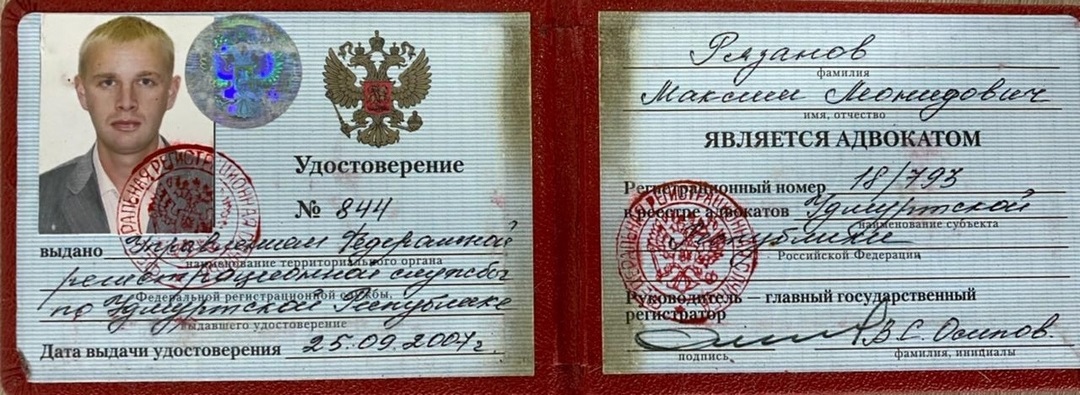 Удостоверение
№ 844
выдано Управлением Федеральной
наименование территориального органа
регистрационной службы
Федеральной регистрационной службы,
по Удмуртской Республике
выдавшего удостоверение
Дата выдачи удостоверения 25.09.2007г.
Рязанов
фамилия
Максим Леонидович
имя, отчество
ЯВЛЯЕТСЯ АДВОКАТОМ
Регистрационный номер 18/793
в реестре адвокатов Удмуртской
наименование субъекта
Республики
Российской Федерации
Руководитель — главный государственный
регистратор
В.С. Осипов.
подпись
фамилия, инициалы